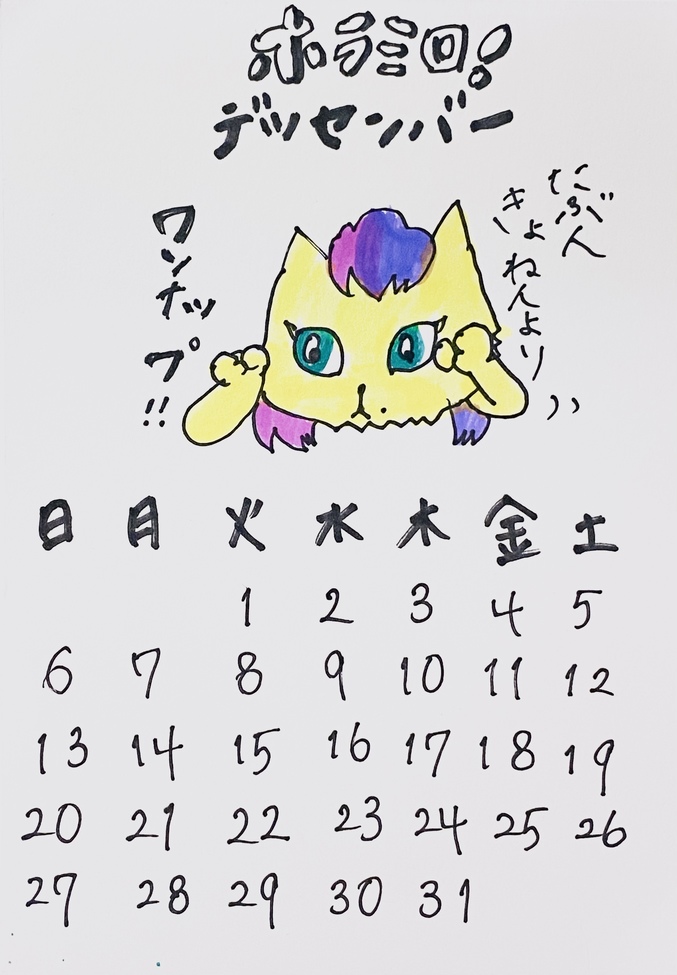 ホラミ回!
デッセンバー
たぶん
きょねんより
ワンナップ!!
日 月 火 水 木 金 土
1 2 3 4 5
6 7 8 9 10 11 12
13 14 15 16 17 18 19
20 21 22 23 24 25 26
27 28 29 30 31